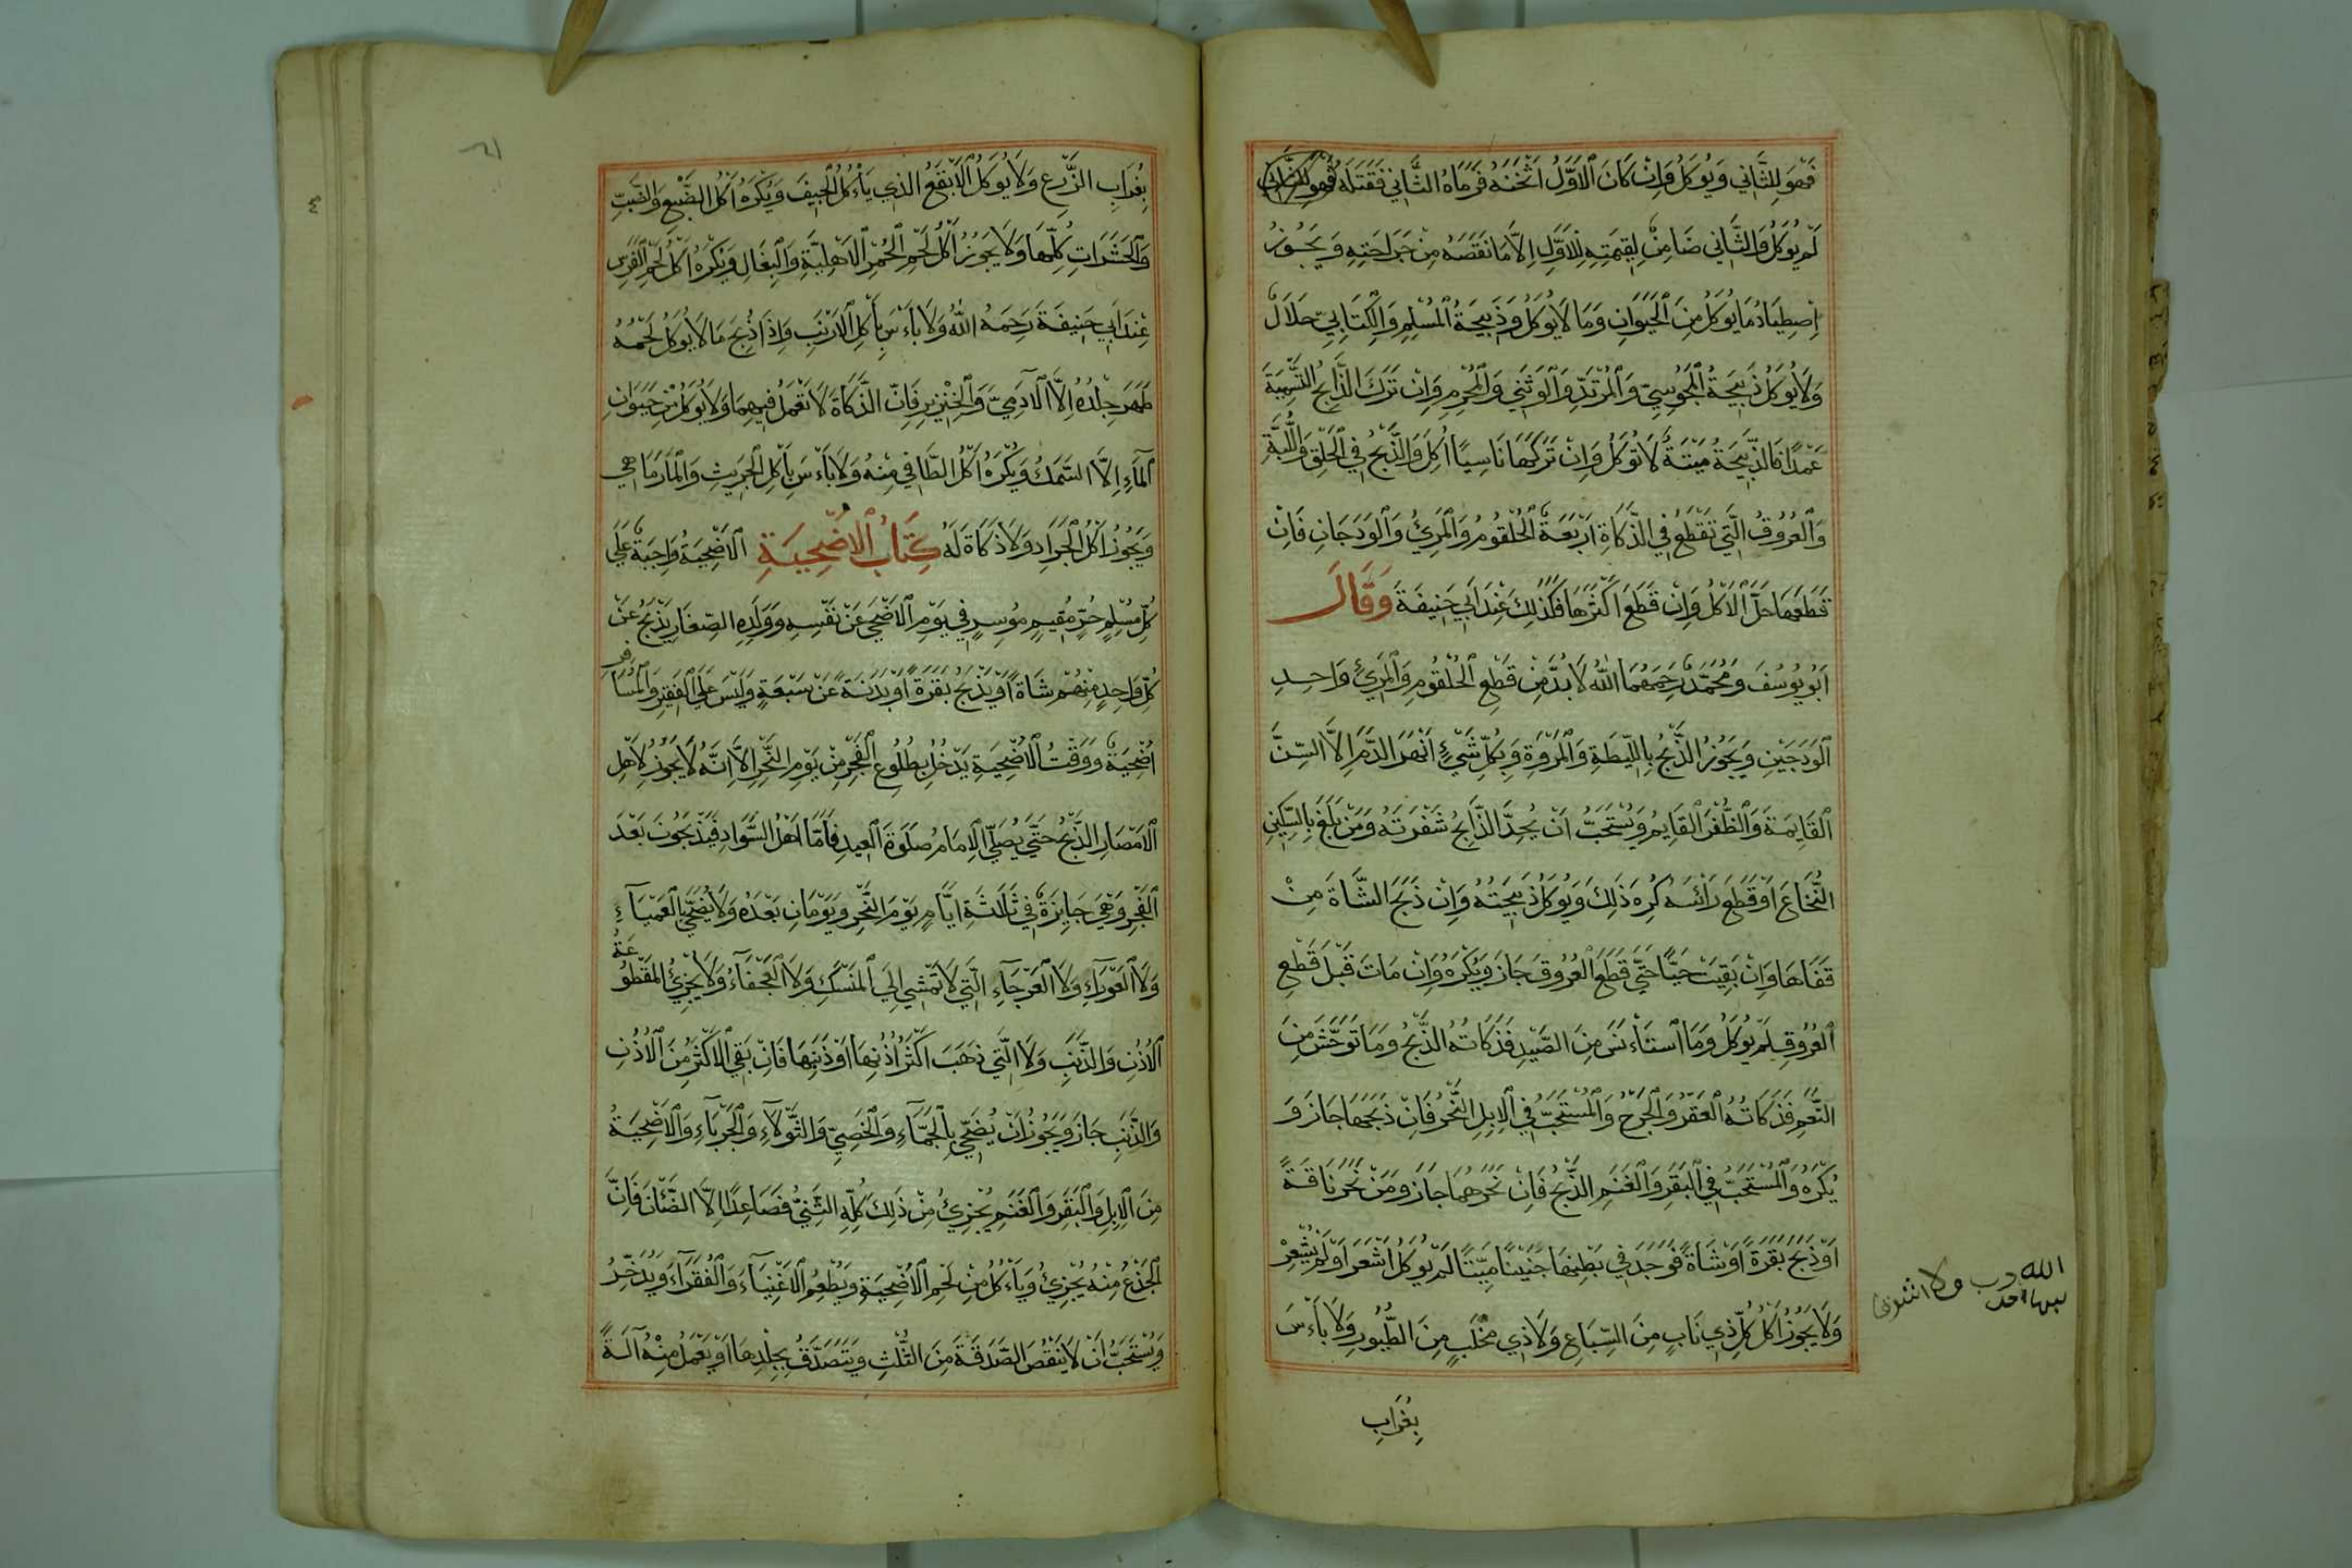 فَهُوَ لِلثَّانِي وَيُوكَلُ وَاِنْ كَانَ الْاَوَّلُ اَثْخَنَهُ فَرَمَاهُ الثَّانِي فَقَتَلَهُ
لَمْ يُوكَلْ وَالثَّانِي ضَامِنٌ لِقِيمَتِهِ لِلْاَوَّلِ اِلَّا مَا نَقَصَهُ مِنْ جَرَاحَتِهِ وَيَجُوزُ
اِصْطِيَادُ مَا يُوكَلُ مِنَ الْحَيَوَانِ وَمَا لَا يُوكَلُ وَذَبِيحَةُ الْمُسْلِمِ وَالْكِتَابِيِّ حَلَالٌ
وَلَا يُوكَلُ ذَبِيحَةُ الْمَجُوسِيِّ وَالْمُرْتَدِّ وَالْوَثَنِي وَالْمُحْرِمِ وَاِنْ تَرَكَ الذَّابِحُ التَّسْمِيَةَ
عَمْدًا فَالذَّبِيحَةُ مَيْتَةٌ لَا تُوكَلُ وَاِنْ تَرَكَهَا نَاسِيًا اُكِلَ وَالذَّبْحُ فِي الْحَلْقِ وَاللَّبَّةِ
وَالْعُرُوقُ الَّتِي تَقْطَعُ فِي الذَّكَاةِ اَرْبَعَةٌ الْحُلْقُومُ وَالْمَرِئُ وَالْوَدَجَانِ فَاِنْ
قَطَعَهَا حَلَّ الْاَكْلُ وَاِنْ قَطَعَ اَكْثَرَهَا فَكَذٰلِكَ عِنْدَ اَبِي حَنِيفَةَ وَقَالَ
اَبُو يُوسُفَ وَمُحَمَّدٌ رَحِمَهُمَا اللهُ لَا بُدَّ مِنْ قَطْعِ الْحُلْقُومِ وَالْمَرِئِ وَاحِدِ
الْوَدَجَيْنِ وَيَجُوزُ الذَّبْحُ بِاللِّيطَةِ وَالْمَرْوَةِ وَبِكُلِّ شَيْءٍ اَنْهَرَ الدَّمَ اِلَّا السِّنَّ
الْقَايِمَةَ وَالظُّفْرَ الْقَايِمُ وَيُسْتَحَبُّ اَنْ يُحِدَّ الذَّابِحُ شَفْرَتَهُ وَمَنْ بَلَغَ بِالسِّكِّينِ
النُّخَاعَ اَوْ قَطَعَ رَاْسَهُ كُرِهَ ذَلِكَ وَيُوكَلُ ذَبِيحَتُهُ وَاِنْ ذَبَحَ الشَّاةَ مِنْ
قَفَاهَا وَاِنْ بَقِيَتْ حَيًّا حَتَّى قَطَعَ الْعُرُوقَ جَازَ وَيُكْرَهُ وَاِنْ مَاتَ قَبْلَ قَطْعِ
الْعُرُوقِ لَمْ يُوكَلْ وَمَا اسْتَأْنَسَ مِنَ الصَّيْدِ فَذَكَاتُهُ الذَّبْحُ وَمَا تَوَحَّشَ مِنَ
النَّعَمِ فَذَكَاتُهُ الْعَقْرُ وَالْجَرْحُ وَالْمُسْتَحَبُّ فِي الْاِبِلِ النَّحْرُ فَاِنْ ذَبَحَهَا جَازَ وَ
يُكْرَهُ وَالْمُسْتَحَبُّ فِي الْبَقَرِ وَالْغَنَمِ الذَّبْحُ فَاِنْ نَحَرَهُمَا جَازَ وَمَنْ نَحَرَ نَاقَةً
اَوْ ذَبَحَ بَقَرَةً اَوْ شَاةً فَوَجَدَ فِي بَطْنِهَا جَنِينًا مَيِّتًا لَمْ يُوكَلْ اَشْعَرَ اَوْ لَمْ يَشْعِرْ
وَلَا يَجُوزُ اَكْلُ كُلِّ ذِي نَابٍ مِنَ السِّبَاعِ وَلَا ذِي مِخْلَبٍ مِنَ الطُّيُورِ وَلَا بَاءْسَ
بِغُرَابِ
بِغُرَابِ الزَّرْعِ وَلَا يُوكَلُ الْاَبْقَعُ الذِي يَاْءكُلُ الْجِيَفَ وَيُكْرَهُ اَكْلُ الضَّبُعِ وَالضَّبِّ
وَالْحَشَرَاتِ كُلِّهَا وَلَا يَجُوزُ اَكْلُ لَحْمِ الْحُمُرِ الْاَهْلِيَّةِ وَالْبِغَالِ وَيُكْرَهُ اَكْلُ لَحْمِ الْفَرَسِ
عِنْدَ اَبِي حَنِيفَةَ رَحِمَهُ اللهُ وَلَا بَاءْسَ بِأَكْلِ الْاَرْنَبِ وَاِذَا ذُبِحَ مَا لَا يُوكَلُ لَحْمُهُ
طَهَرَ جِلْدُهُ اِلَّا الْآدَمِيَّ وَالْخِنْزِيرِ فَاِنَّ الذَّكَاةَ لَا تَعْمَلُ فِيهِمَا وَلَا يُوكَلُ مِنْ حَيَوَانِ
الْمَآءِ اِلَّا السَّمَكُ وَيُكْرَهُ اَكْلُ الطَّافِي مِنْهُ وَلَا بَاءْسَ بِأَكْلِ الْجَرِيثِ وَالْمَارْمَاهِي
وَيَجُوزُ اَكْلُ الْجَرَادِ وَلَا ذَكَاةَ لَهُ كِتَابُ الْاُضْحِيَةِ الْاُضْحِيَةُ وَاجِبَةٌ عَلَى
كُلِّ مُسْلِمٍ حُرٍّ مُقِيمٍ مُوسِرٍ فِي يَوْمِ الْاَضْحَى عَنْ نَفْسِهِ وَوَلَدِهِ الصِّغَارِ يَذْبَحُ عَنْ
كُلِّ وَاحِدٍ مِنْهُمْ شَاةً اَوْ يَذْبَحُ بَقَرَةً اَوْ بَدَنَةً عَنْ سَبْعَةٍ وَلَيْسَ عَلَى الْفَقِيرِ وَالْمُسَافِرِ
اُضْحِيَةٌ وَوَقْتُ الْاُضْحِيَةِ يَدْخُلُ بِطُلُوعِ الْفَجْرِ مِنْ يَوْمِ النَّحْرِ اِلَّا اَنَّهُ لَا يَجُوزُ لِاَهْلِ
الْاَمْصَارِ الذَّبْحُ حَتَّى يُصَلِّيَ الْاِمَامُ صَلَوةَ الْعِيدِ فَاَمَّا اَهْلُ السَّوَادِ فَيَذْبَحُونَ بَعْدَ
الْفَجْرِ وَهِيَ جَايِزَةٌ فِي ثَلَاثَةِ اَيَّامٍ يَوْمَ النَّحْرِ وَيَوْمَانِ بَعْدَهُ وَلَا يُضَحِّي بِالْعَمْيَآءِ
وَلَا الْعَوْرَآءِ وَلَا الْعَرْجَآءِ الَّتِي لَا تَمْشِي اِلَى الْمَنْسَكِ وَلَا الْعَجْفَآءُ وَلَا يُجْزِئُ الْمَقْطُوعَةُ
الْاُذُنِ وَالذَّنَبِ وَلَا الَّتِي ذَهَبَ اَكْثَرُ اُذُنِهَا اَوْ ذَنَبِهَا فَاِنْ بَقِيَ الْاَكْثَرُ مِنَ الْاُذُنِ
وَالذَّنَبِ جَازَ وَيَجُوزُ اَنْ يُضَحِّي بِالْجَمَّآءِ وَالْخَصِيِّ وَالثَّوْلَآءِ وَالْجَرْبَآءِ وَالْاُضْحِيَةُ
مِنَ الْاِبِلِ وَالْبَقَرِ وَالْغَنَمِ يُجْزِئُ مِنْ ذَلِكَ كُلِّهِ الثَّنِيُّ فَصَاعِدًا اِلَّا الضَّاْنَ فَاِنَّ
الْجَذَعَ مِنْهُ يُجْزِئُ وَيَاْءكُلُ مِنْ لَحْمِ الْاُضْحِيَةِ وَيُطْعِمُ الْاَغْنِيَآءَ وَالْفُقَرَآءَ وَيَدَّخِرُ
وَيُسْتَحَبُّ اَنْ لَا يَنْقُصَ الصَّدَقَةَ مِنَ الثُّلُثِ وَيَتَصَدَّقُ بِجِلْدِهَا اَوْ يَعْمَلُ مِنْهُ آلَةً